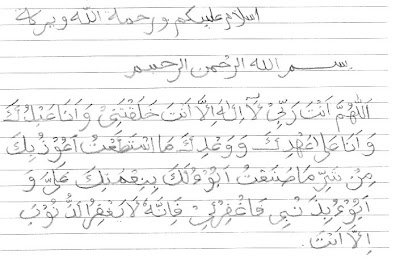 اسلام عليكم ورحمة الله وبركة
بسم الله الرحمن الرحيم
اَللّٰهُمَّ اَنْتَ رَبِّيْ لَآ اِلٰهَ اِلَّا اَنْتَ خَلَقْتَنِيْ وَاَنَا عَبْدُكَ
وَاَنَا عَلَى عَهْدِكَ وَوَعْدِكَ مَا اسْتَطَعْتُ اَعُوْذُ بِكَ
مِنْ شَرِّ مَا صَنَعْتُ اَبُوْءُ لَكَ بِنِعْمَتِكَ عَلَيَّ وَ
اَبُوْءُ بِذَ نْبِي فَاغْفِرْلِيْ فَاِنَّهُ لَا يَغْفِرُ الذُّ نُوْبَ
اِلَّا اَنْتَ.